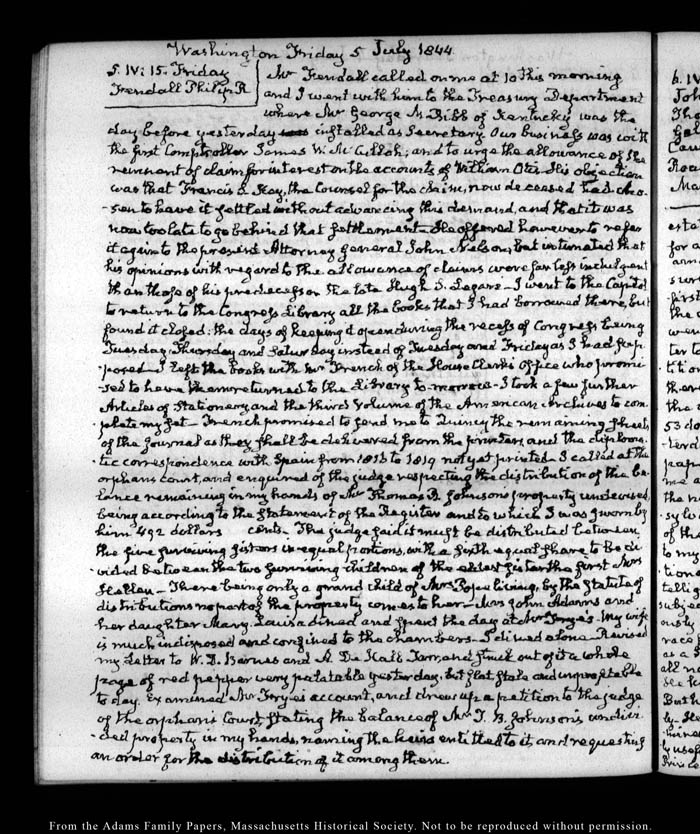 Washington Friday 5 July 1844.
5. IV: 15. Friday
Fendall Philip R
Mr Fendall called on me at 10 this morning
and I went with him to the Treasury Department
where Mr George M. Bibb of Kentucky was the
day before yesterday installed as Secretary. Our business was with
the first Comptroller James W. McCulloh; and to urge the allowance of the
remnant of claim for interest on the accounts of William Otis. His objection
was that Francis S. Key, the Counsel for the claim, now deceased had cho-
-sen to have it settled without advancing this demand, and that it was
now too late to go behind that settlement. He offered however to refer
it again to the present Attorney General John Nelson, but intimated that
his opinions with regard to the allowance of claims were far less indulgent
than those of his predecessor the late Hugh S. Legare. I went to the Capitol
to return to the Congress Library all the books that I had borrowed there, but
found it closed: the days of keeping it open during the recess of Congress being
Tuesday Thursday and Saturday instead of Tuesday and Friday as I had sup-
-posed. I left the books with Mr French of the House Clerk's Office who promi-
-sed to have them returned to the Library to-morrow. I took a few further
Articles of Stationery, and the third Volume of the American Archives to com-
-plete my set. French promised to send me to Quincy the remaining sheets
of the Journal as they shall be delivered from the printer, and the diploma-
-tic correspondence with Spain from 1815 to 1819 not yet printed. I called at the
orphans court, and enquired of the judge respecting the distribution of the ba-
-lance remaining in my hands of Mr Thomas B. Johnson's property undevised,
being according to the statement of the Register and to which I was sworn by
him 492 dollars cents. The judge said it must be distributed between
the five surviving sisters in equal portions, with a sixth equal share to be di-
-vided between the two surviving children of the eldest sister the first Mrs
Hellen. There being only a grand child of Mrs Pope living, by the Statute of
distributions no part of the property comes to her. Mrs John Adams and
her daughter Mary Louisa dined and spent the day at Mr Frye's. My wife
is much indisposed and confined to the chambers. I dined alone. Revised
my Letter to W. D. Barnes and A. De Kalb Tarr, and struck out of it a whole
page of red pepper very palatable yesterday, but flat stale and unprofitable
to day. Examined Mr Frye's account, and drew up a petition to the judge
of the orphans Court, stating the balance of Mr T. B. Johnson's undivi-
-ded property in my hands, naming the heirs entitled to it, and requesting
an order for the distribution of it among them.
From the Adams Family Papers, Massachusetts Historical Society. Not to be reproduced without permission.